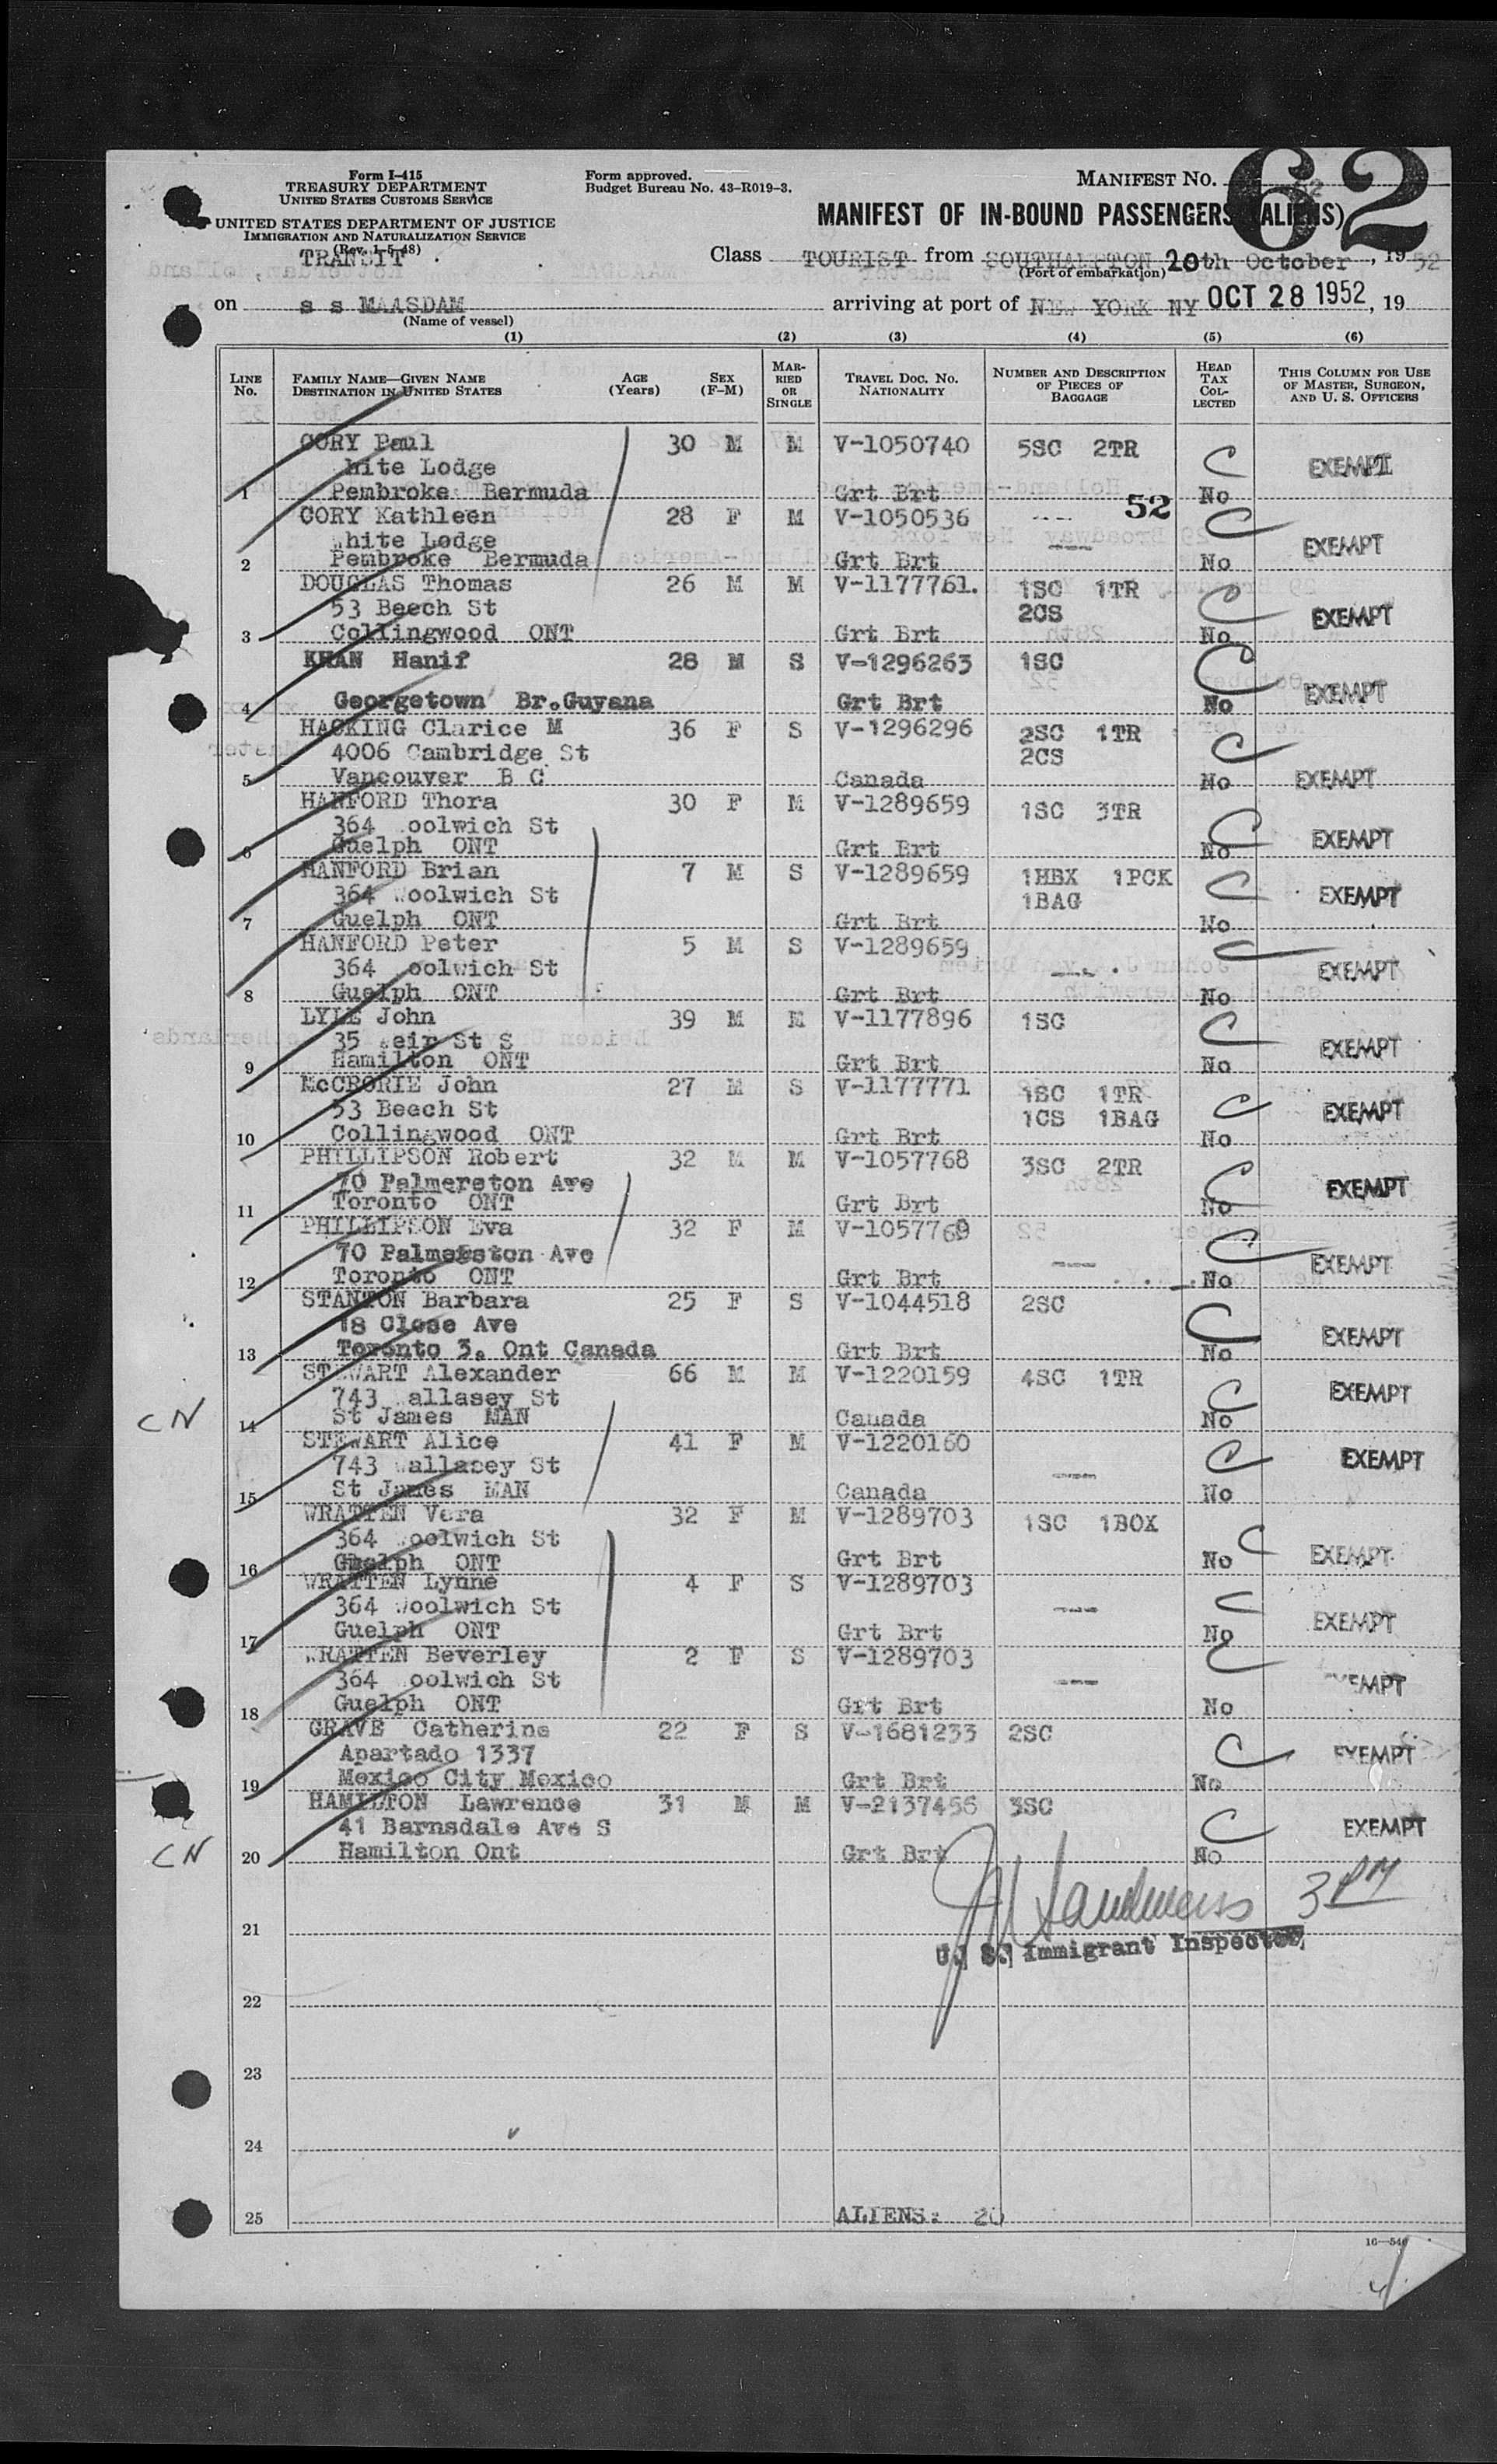 Form I-415
TREASURY DEPARTMENT
UNITED STATES CUSTOMS SERVICE
UNITED STATES DEPARTMENT OF JUSTICE
IMMIGRATION AND NATURALIZATION SERVICE
(Rev. 1-5-48)
TRANSIT
Form approved.
Budget Bureau No. 43-R019-3.
MANIFEST NO. 62
MANIFEST OF IN-BOUND PASSENGERS (ALIENS)
Class TOURIST from SOUTHAMPTON 20th October, 1952
(Port of embarkation)
on s s MAASDAM arriving at port of NEW YORK NY OCT 28 1952, 19
(Name of vessel)
(1) (2) (3) (4) (5) (6)
LINE NO. FAMILY NAME—GIVEN NAME DESTINATION IN UNITED STATES AGE (YEARS) SEX (F-M) MARRIED OR SINGLE TRAVEL DOC. NO. NATIONALITY NUMBER AND DESCRIPTION OF PIECES OF BAGGAGE HEAD TAX COLLECTED THIS COLUMN FOR USE OF MASTER, SURGEON, AND U. S. OFFICERS
CORY Paul 30 M M V-1050740 5SC 2TR C EXEMPT
hite Lodge
1 Pembroke Bermuda Grt Brt 52 No
CORY Kathleen 28 F M V-1050536 --- C EXEMPT
White Lodge
2 Pembroke Bermuda Grt Brt No
DOUGLAS Thomas 26 M M V-1177761. 1SC 1TR C EXEMPT
53 Beech St 2CS
3 Collingwood ONT Grt Brt No
KHAN Hanif 28 M S V-1296263 1SC C EXEMPT
4 Georgetown Br.Guyana Grt Brt No
HACKING Clarice M 36 F S V-1296296 2SC 1TR C EXEMPT
4006 Cambridge St 2CS
5 Vancouver B C Canada No
HANFORD Thora 30 F M V-1289659 1SC 3TR C EXEMPT
364 oolwich St
6 Guelph ONT Grt Brt No
HANFORD Brian 7 M S V-1289659 1HBX 1PCK C EXEMPT
364 Woolwich St 1BAG
7 Guelph ONT Grt Brt No
HANFORD Peter 5 M S V-1289659 C EXEMPT
364 oolwich St ---
8 Guelph ONT Grt Brt No
LYLE John 39 M M V-1177896 1SC C EXEMPT
35 Weir St S
9 Hamilton ONT Grt Brt No
McCRORIE John 27 M S V-1177771 1SC 1TR C EXEMPT
53 Beach St 1CS 1BAG
10 Collingwood ONT Grt Brt No
PHILLIPSON Robert 32 M M V-1057768 3SC 2TR C EXEMPT
70 Palmerston Ave
11 Toronto ONT Grt Brt No
PHILLIPSON Eva 32 F M V-1057769 C EXEMPT
70 Palmerston Ave ---
12 Toronto ONT Grt Brt No
STANTON Barbara 25 F S V-1044518 2SC C EXEMPT
18 Close Ave
13 Toronto 3, Ont Canada Grt Brt No
STEWART Alexander 66 M M V-1220159 4SC 1TR C EXEMPT
743 allasey St
CN 14 St James MAN Canada No
STEWART Alice 41 F M V-1220160 C EXEMPT
743 Wallasey St ---
15 St James MAN Canada No
WRATTEN Vera 32 F M V-1289703 1SC 1BOX C EXEMPT
364 Woolwich St
16 Guelph ONT Grt Brt No
WRATTEN Lynne 4 F S V-1289703 C EXEMPT
364 Woolwich St ---
17 Guelph ONT Grt Brt No
WRATTEN Beverley 2 F S V-1289703 C EXEMPT
364 oolwich St ---
18 Guelph ONT Grt Brt No
GRAVE Catherine 22 F S V-1681233 2SC C EXEMPT
Apartado 1337
19 Mexico City Mexico Grt Brt No
HAMILTON Lawrence 31 M M V-2137456 3SC C EXEMPT
41 Barnsdale Ave S
CN 20 Hamilton Ont Grt Brt No
3 PM
21
U. S. Immigrant Inspector
22
23
24
25 ALIENS: 20